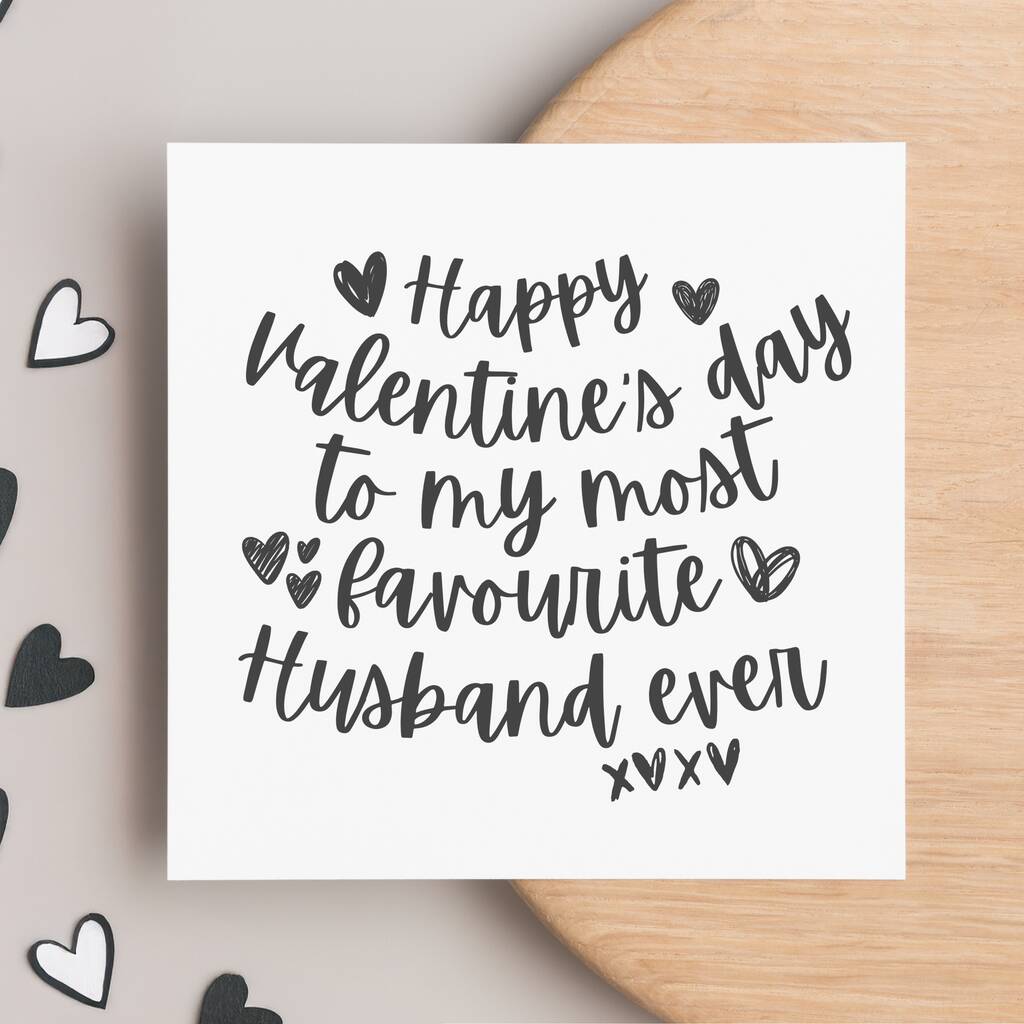 Happy
Valentine's day
to my most
favourite
Husband ever
x♥x♥